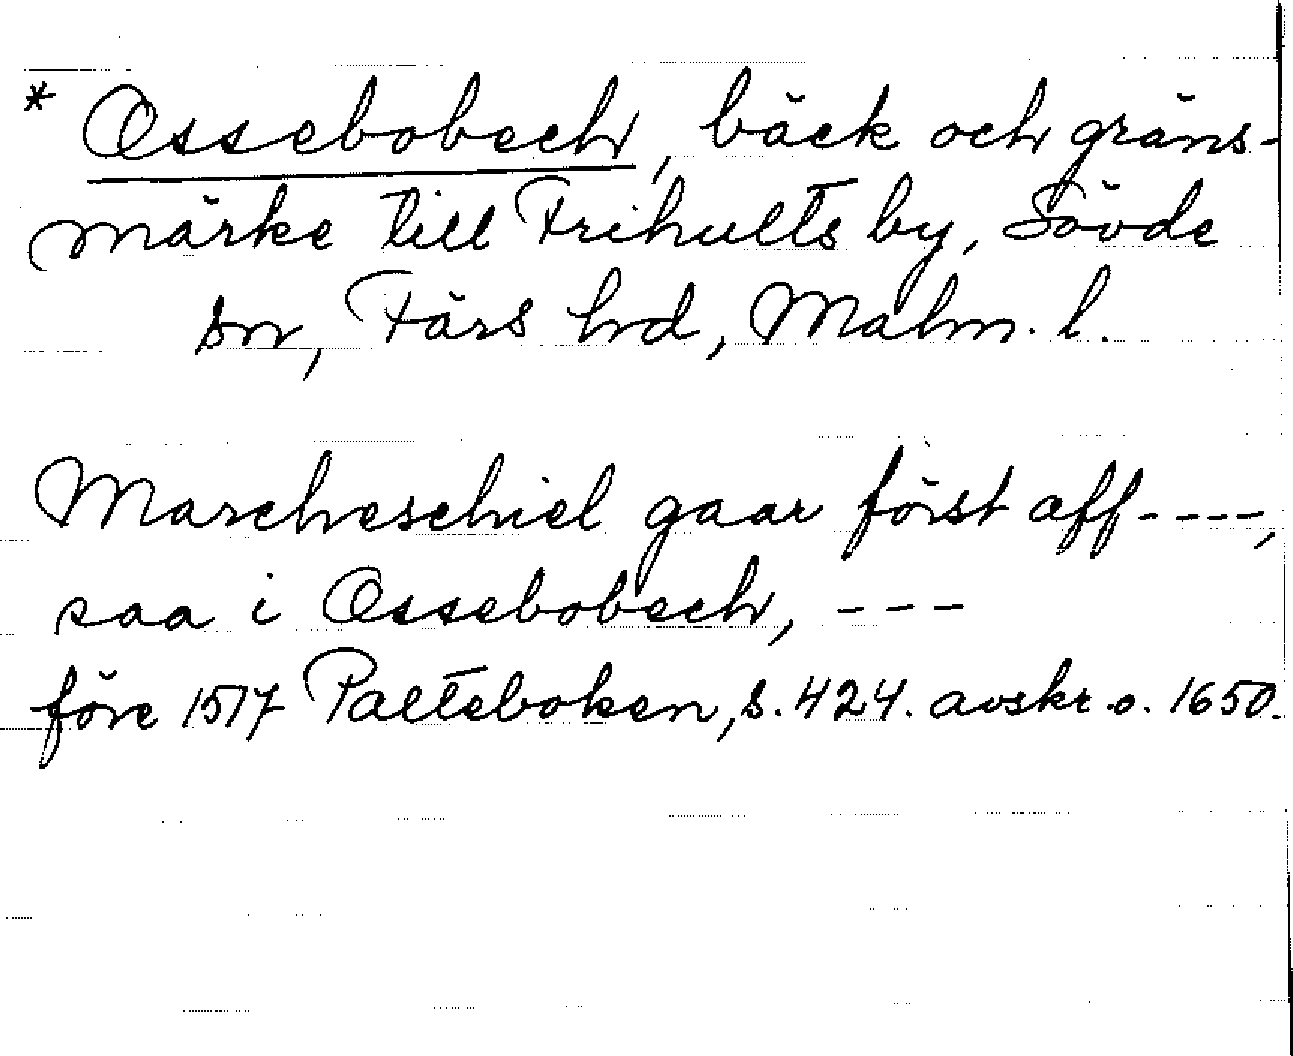 * Ossebobech, bäck och gräns-
märke till Frihults by, Sövde
sn, Färs hd, Malm. l.
Marcheschiel gaar först aff ----,
saa i Ossebobech, ---
före 1517 Palteboken, s. 424. avskr. o. 1650.